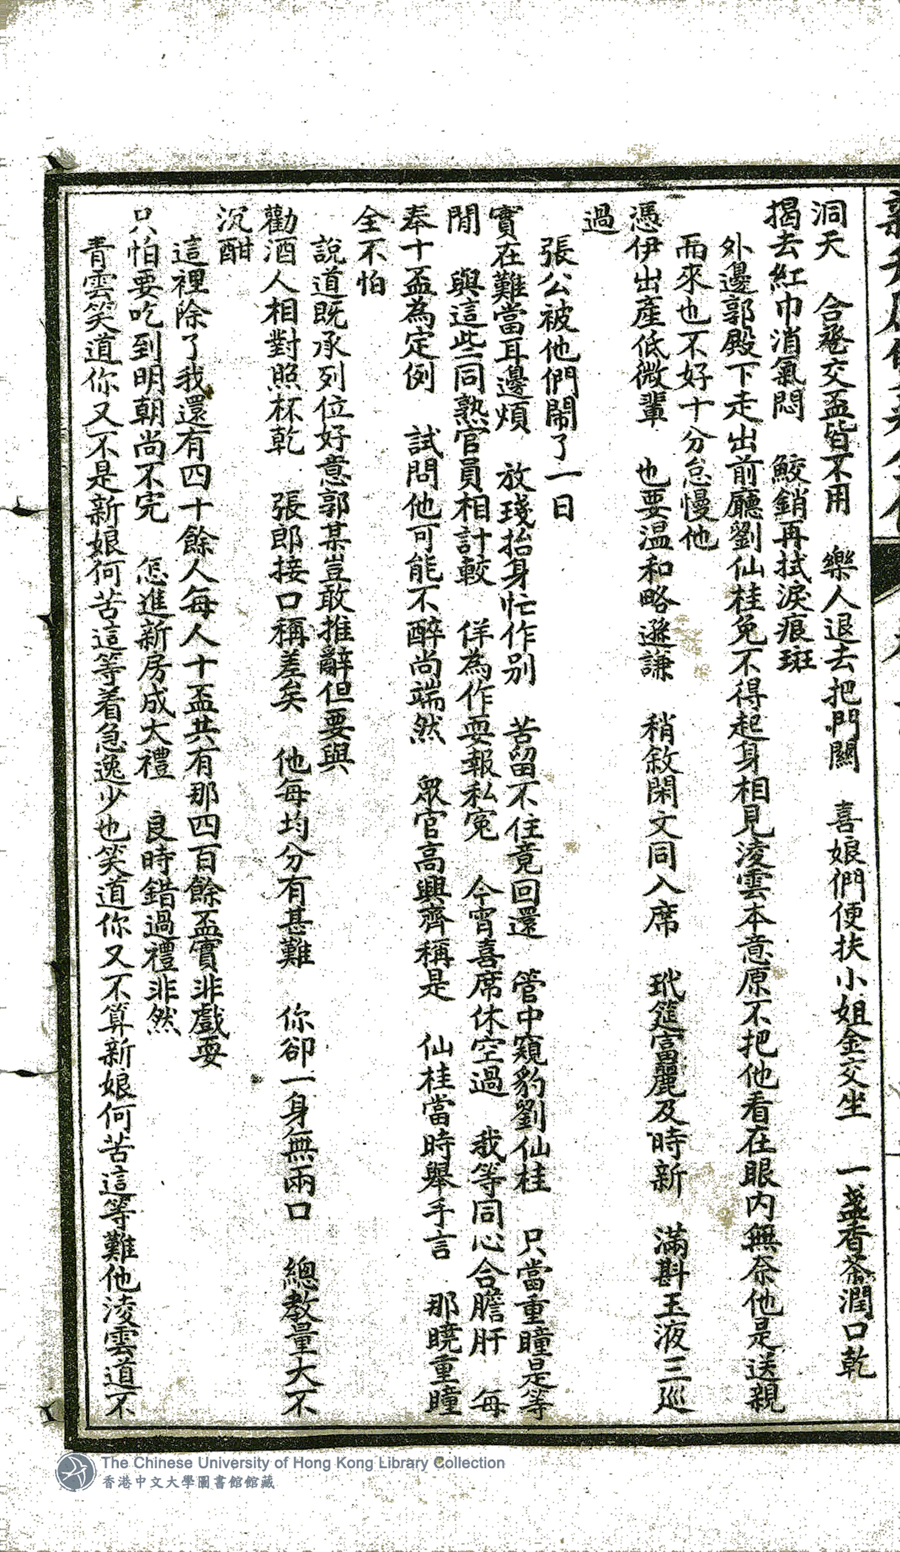 洞天　合卺交盃皆不用　樂人退去把門關　喜娘們便扶小姐金交坐　一盞香茶潤口乾
揭去紅巾消氣悶　鮫銷再拭淚痕斑
外邊郭殿下走出前廳劉仙桂免不得起身相見淩雲本意原不把他看在眼內無奈他是送親
而來也不好十分怠慢他
憑伊出產低微輩　也要温和略遜謙　稍敘閑文同入席　玳筵富麗及時新　滿斟玉液三巡
過
張公被他們鬧了一日
實在難當耳邊煩　放琖抬身忙作別　苦留不住竟回還　管中窺豹劉仙桂　只當重瞳是等
閒　與這些同熟官員相計較　佯為作耍報私冤　今宵喜席休空過　我等同心合膽肝　每
奉十盃為定例　試問他可能不醉尚端然　眾官高興齊稱是　仙桂當時舉手言　那曉重瞳
全不怕
說道既承列位好意郭某豈敢推辭但要與
勸酒人相對照杯乾　張郎接口稱差矣　他每均分有甚難　你卻一身無兩口　總教量大不
沉酣
這裡除了我還有四十餘人每人十盃共有那四百餘盃實非戲耍
只怕要吃到明朝尚不完　怎進新房成大禮　良時錯過禮非然
青雲笑道你又不是新娘何苦這等着急逸少也笑道你又不算新娘何苦這等難他淩雲道不
The Chinese University of Hong Kong Library Collection
香港中文大學圖書館館藏